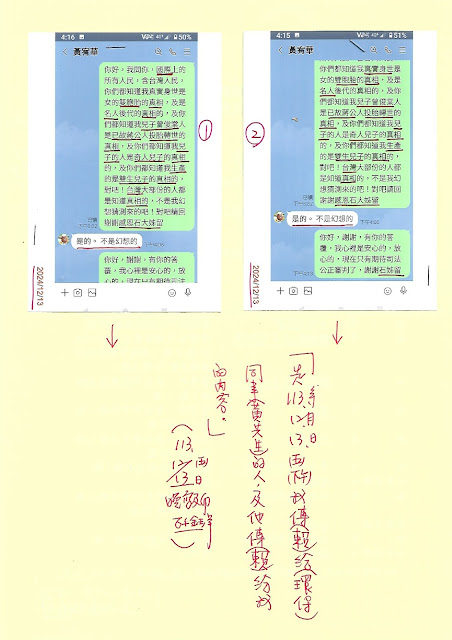 4:16
51%
黃宥華
你好,我問你,國際上的
所有人民,含台灣人民,
你們都知道我真實身世是
女的雙胞胎的真相,及是
名人後代的真相的,及你
們都知道我兒子曾俊棠人
是已故蔣公人投胎轉世的
真相,及你們都知道我兒
子的人是奇人兒子的真相
的,及你們都知道我生產
的是雙生兒子的真相的,
對吧!台灣大部份的人都
是知道真相的,不是我幻
想猜測來的吧!對吧請回
謝謝感恩石大姊留
已讀
是的。不是幻想的
你好,謝謝,有你的答
覆,我心裡是安心的,放
心的,現在只有期待司法
2024/12/13
①
4:15
50%
黃宥華
你們都知道我真實身世是
女的雙胞胎的真相,及是
名人後代的真相的,及你
們都知道我兒子曾俊棠人
是已故蔣公人投胎轉世的
真相,及你們都知道我兒
子的人是奇人兒子的真相
的,及你們都知道我生產
的是雙生兒子的真相的,
對吧!台灣大部份的人都
是知道真相的,不是我幻
想猜測來的吧!對吧請回
謝謝感恩石大姊留
已讀
是的。不是幻想的
你好,謝謝,有你的答
覆,我心裡是安心的,放
心的,現在只有期待司法
公正審判了,謝謝石姊留
2024/12/13
②
113年12月13日
我傳賴給環保
同事黃先生的人,及他傳賴給我
的內容。」
(113.
12/13日